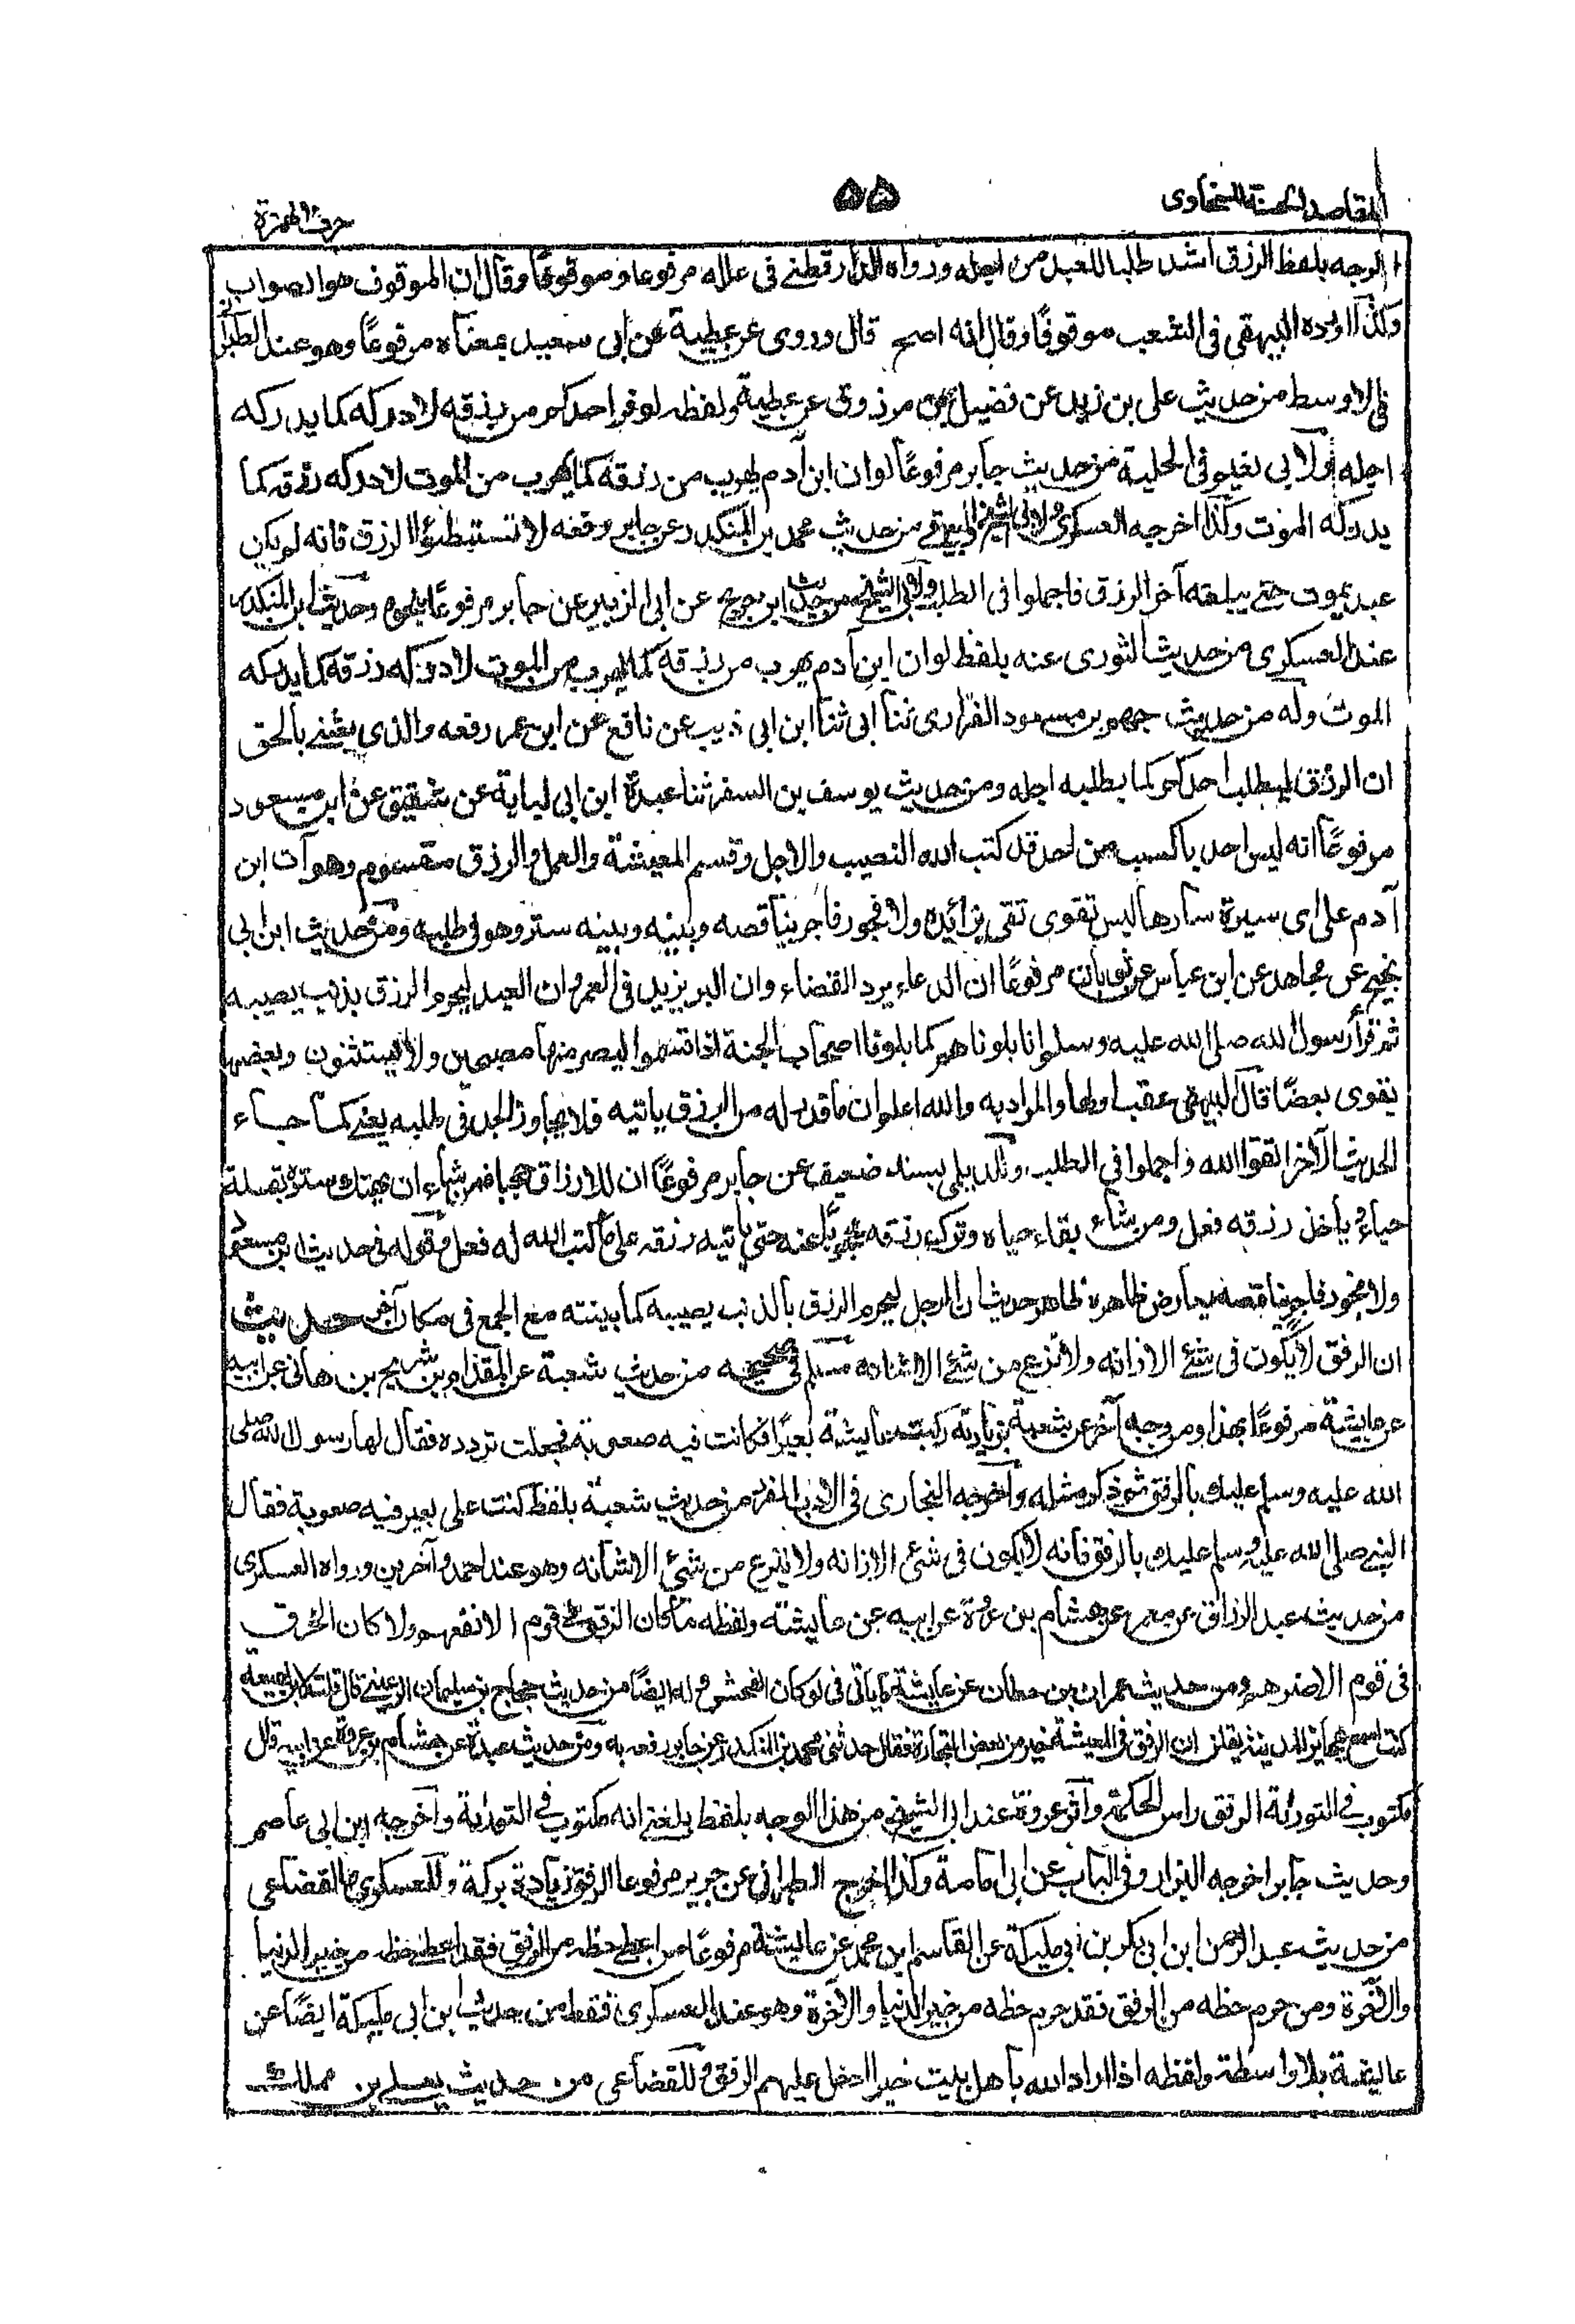 المقاصد الحسنة للسخاوى
۵۵
حرف الهمزة
الوجه بلفظ الرزق اشد طلبا للعبد من اجله ورواه الدارقطنى فى علله مرفوعا وموقوفا وقال ان الموقوف هو الصواب
وكذا اورده البيهقى فى الشعب موقوفا وقال انه اصح قال وروى عن عطية عن ابى سعيد بمعناه مرفوعًا وهو عند الطبرانى
فى الاوسط من حديث على بن زيد عن فضيل بن مرزوق عن عطية ولفظه لو فر احدكم من رزقه لادركه كما يدركه
اجله ولابى نعيم فى الحلية من حديث جابر مرفوعًا لو ان ابن آدم يهرب من رزقه كما يهرب من الموت لادركه رزقه كما
يدركه الموت وكذا اخرجه العسكرى ولابى الشيخ والبيهقى من حديث محمد بن المنكدر عن جابر رفعه لا تستبطئوا الرزق فانه لم يكن
عبد يموت حتى يبلغه آخر الرزق فاجملوا فى الطلب ولابى الشيخ من حديث ابن جريج عن ابى الزبير عن جابر مرفوعًا وحديث ابن المنكدر
عند العسكرى من حديث الثورى عنه بلفظ لو ان ابن آدم يهرب من رزقه كما يهرب من الموت لادركه رزقه كما يدركه
الموت وله من حديث جمهور بن مسعود الفزارى ثنا ابى ثنا ابن ابى ذيب عن نافع عن ابن عمر رفعه والذى بعثنى بالحق
ان الرزق ليطلب احدكم كما يطلبه اجله ومن حديث يوسف بن السفر ثنا عبدة ابن ابى لبابة عن شقيق عن ابن مسعود
مرفوعًا انه ليس احد باكسب من احد قد كتب الله النصيب والاجل وقسم المعيشة والعمل والرزق مقسوم وهو آت ابن
آدم على اى سيرة سارها ليس تقوى تقى بزائده ولا فجور فاجر بناقصه وبينه وبينه ستر وهو فى طلبه ومن حديث ابن ابى
نجيح عن مجاهد عن ابن عباس عن ثوبان مرفوعًا ان الدعاء يرد القضاء وان البر يزيد فى العمر وان العبد ليحرم الرزق بذنب يصيبه
ثم قرأ رسول الله صلى الله عليه وسلم انا بلوناهم كما بلونا اصحاب الجنة اذ اقسموا ليصرمنها مصبحين ولا يستثنون وبعضها
يقوى بعضًا قال البيهقى عقب اولها والمراد به والله اعلم ان ما قدر له من الرزق ياتيه فلا يجاوز الحد فى طلبه يعنى كما جاء
الحديث الآخر اتقوا الله واجملوا فى الطلب وللديلمى بسند ضعيف عن جابر مرفوعًا ان للارزاق حجبا فمن شاء ان يهتك ستره بقلة
حياء وياخذ رزقه فعل ومن شاء بقاء حياه وترك رزقه عنه حتى ياتيه رزقه على ما كتب الله له فعل وقوله فى حديث ابن مسعود
ولا فجور فاجر بناقصه يعارض ظاهره ظاهر حديث ان الرجل ليحرم الرزق بالذنب يصيبه كما بينته مع الجمع فى مكان آخر حديث
ان الرفق لا يكون فى شئ الا زانه ولا نزع من شئ الا شانه مسلم فى صحيحه من حديث شعبة عن المقدام بن شريح بن هانى عن ابيه
عن عايشة مرفوعًا بهذا ومن وجه آخر عن شعبة بزيادة ركبت عايشة بعيرًا فكانت فيه صعوبة فجعلت تردده فقال لها رسول الله صلى
الله عليه وسلم عليك بالرفق ثم ذكر مثله وأخرجه البخارى فى الادب المفرد من حديث شعبة بلفظ كنت على بعير فيه صعوبة فقال
النبى صلى الله عليه وسلم عليك بالرفق فانه لا يكون فى شئ الا زانه ولا ينزع من شئ الا شانه وهو عند احمد وآخرين ورواه العسكرى
من حديث عبد الرزاق عن معمر عن هشام بن عروة عن ابيه عن عايشة ولفظه ما كان الرفق فى قوم الا نفعهم ولا كان الخرق
فى قوم الا ضرهم ومن حديث عمران بن حطان عن عايشة كما ياتى فى لو كان الفحش وله ايضًا من حديث حجاج بن سليمان الرعينى قال قلت لابن لهيعة
كنت اسمع عجايز المدينة يقلن ان الرفق فى المعيشة خير من بعض التجارة فقال حدثنى محمد بن المنكدر عن جابر رفعه به ومن حديث عبدة عن هشام بن عروة عن ابيه قال
مكتوب فى التوراة الرفق راس الحكمة وأثر عروة عند ابى الشيخ من هذا الوجه بلفظ بلغنى انه مكتوب فى التوراة وأخرجه ابن ابى عاصم
وحديث جابر اخرجه البزار وفى الباب عن ابى امامة وكذا اخرج الطبرانى عن جرير مرفوعا الرفق زيادة بركة وللعسكرى والقضاعى
من حديث عبد الرحمن ابن ابى بكر بن ابى مليكة عن القاسم ابن محمد عن عايشة مرفوعًا من اعطى حظه من الرفق فقد اعطى حظه من خير الدنيا
والآخرة ومن حرم حظه من الرفق فقد حرم حظه من خير الدنيا والآخرة وهو عند العسكرى فقط من حديث ابن ابى مليكة ايضًا عن
عايشة بلا واسطة ولفظه اذا اراد الله باهل بيت خيرا ادخل عليهم الرفق وللقضاعى من حديث يعلى بن مملك